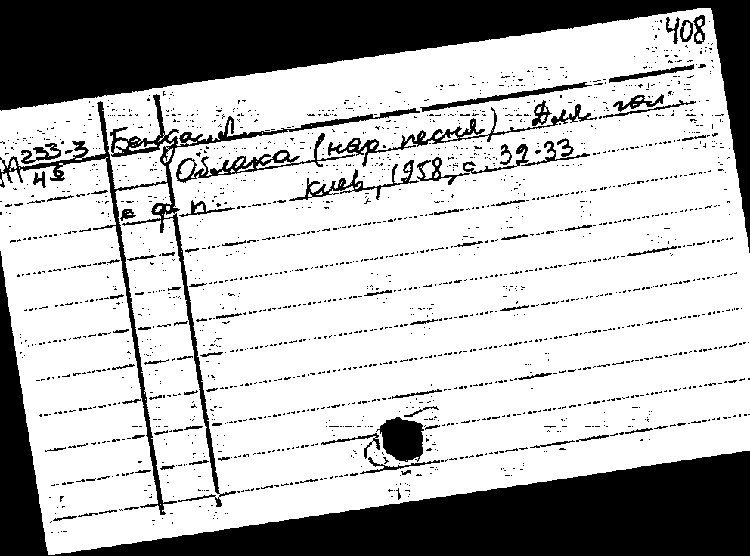 408
М 233-3 Бендас Л
4б Облака (нар. песня). Для гол.
с ф-п. Киев, 1958, с. 32-33